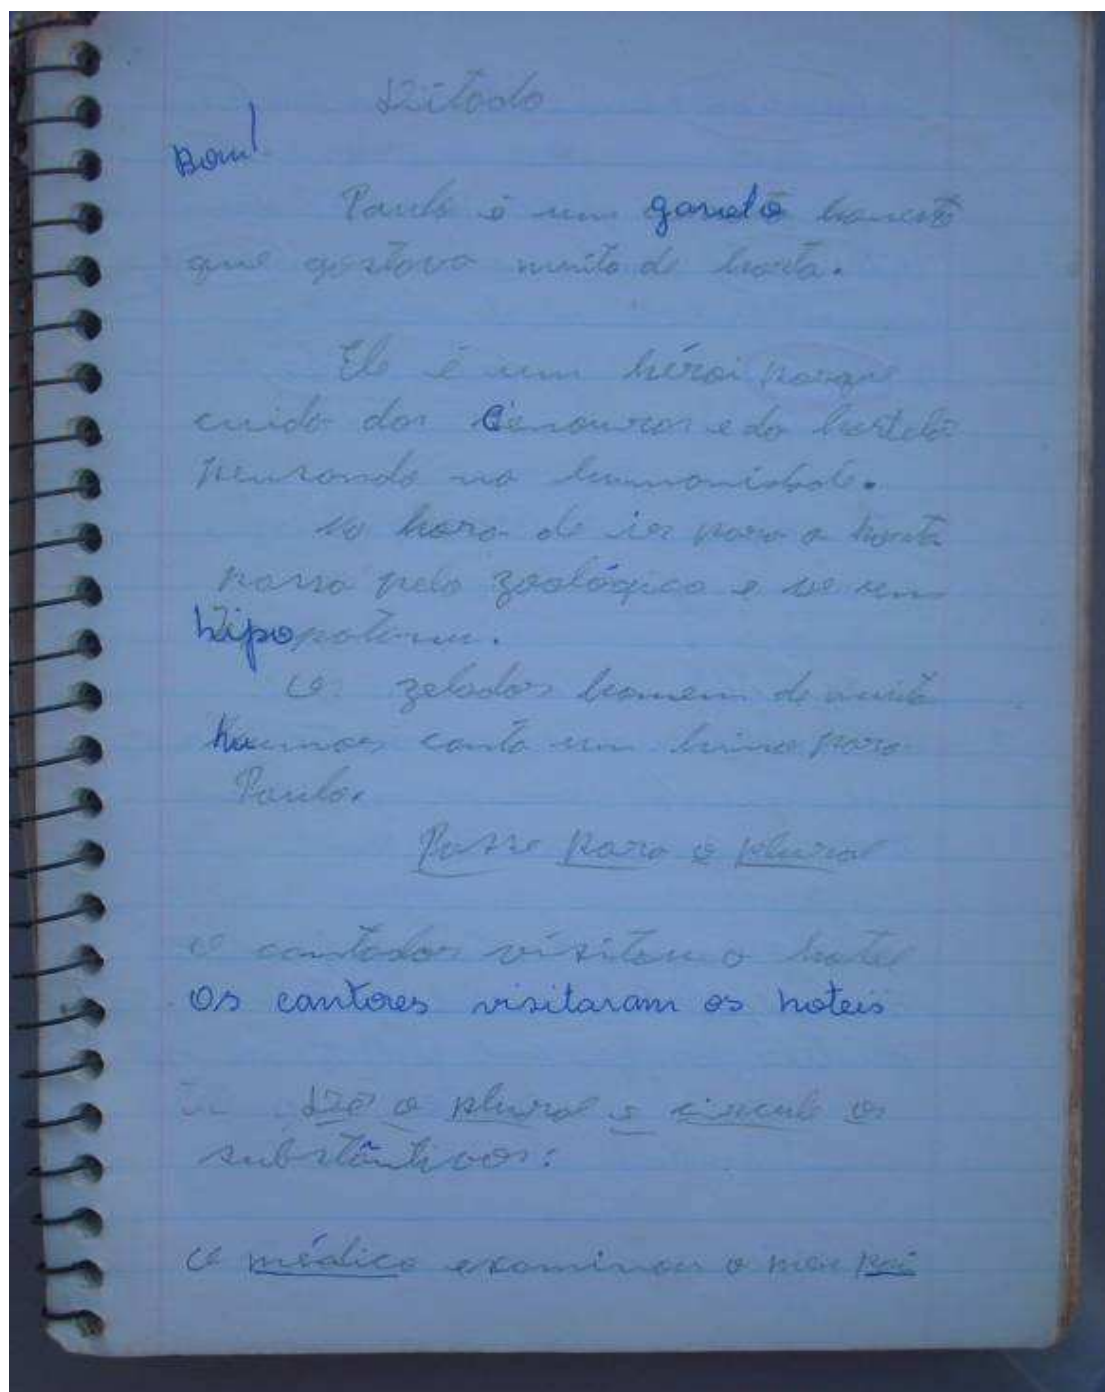 Ditado
Bom!
Paulo é um garoto honesto
que gostava muito de horta.
Ele é um hérói porque
cuida das cenouras e da hortelã
pensando na humanidade.
Na hora de ir para a horta
passa pelo zoológico e ve um
hipopotamu.
O zelador homem de muito
humor canta um hino para
Paulo.
Passe para o plural
O cantador visitou o hotel
Os cantores visitaram os hoteis
Dê o plural e circule os
substântivos:
O médico examinou o meu pai